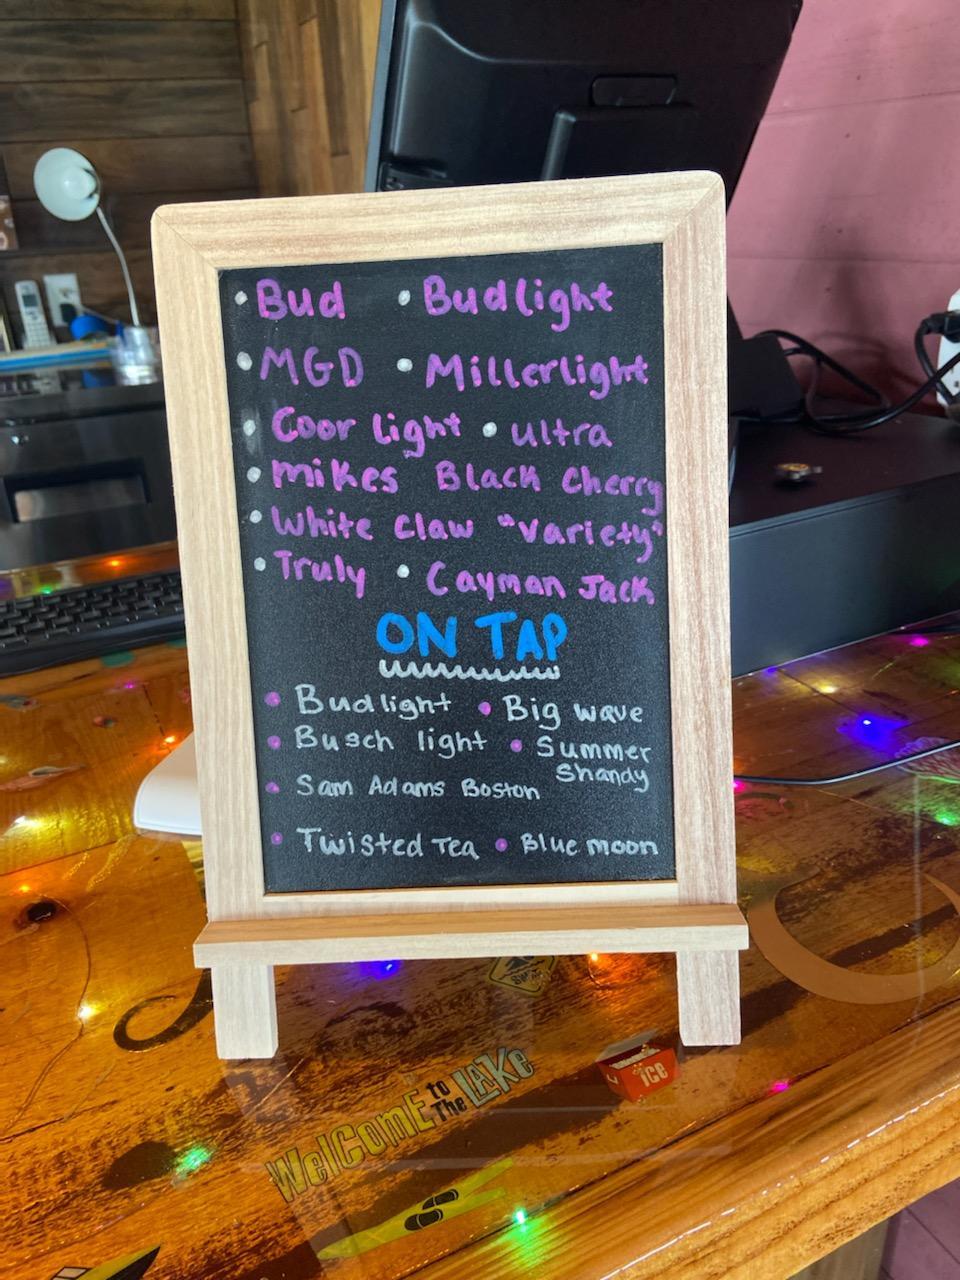 • Bud • Budlight
• MGD • Millerlight
• Coor light • ultra
• mikes Black Cherry
• White Claw "variety"
• Truly • Cayman Jack
ON TAP
• Budlight • Big wave
• Busch light • Summer
Shandy
• Sam Adams Boston
• Twisted Tea • Blue moon
WelComE to The LAKe
ice